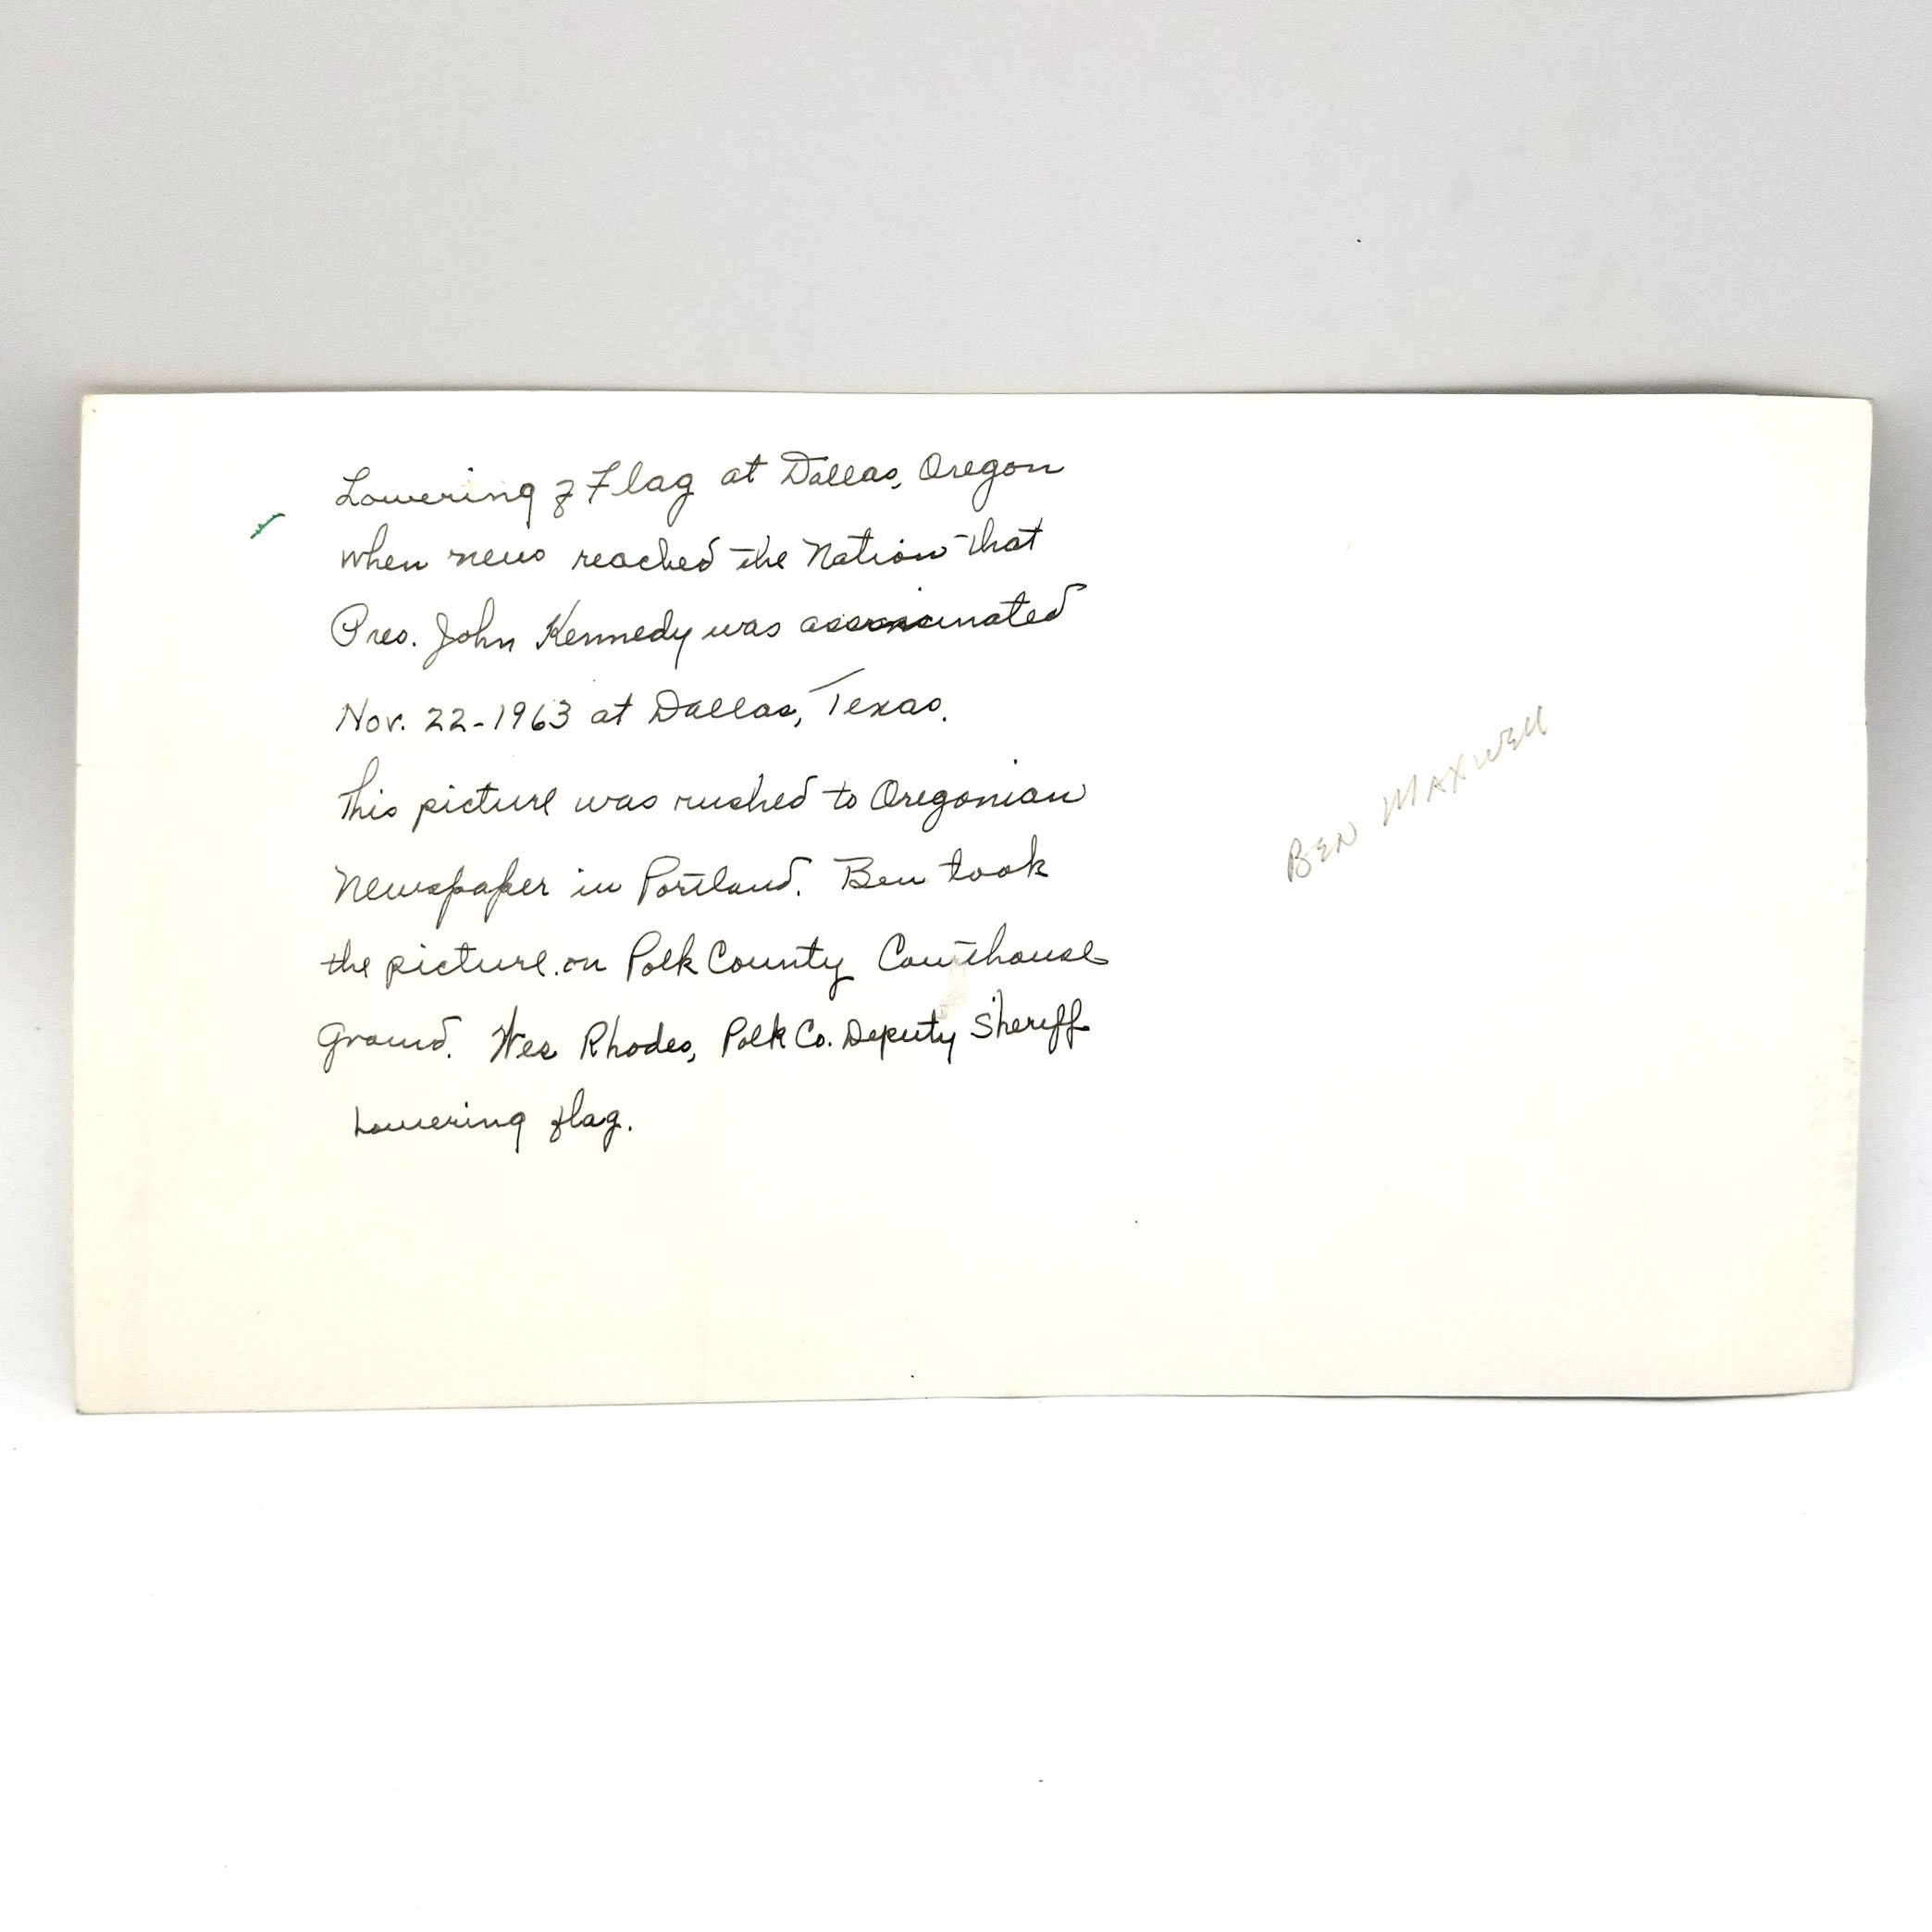 Lowering of Flag at Dallas, Oregon
when news reached the Nation that
Pres. John Kennedy was assassinated
Nov. 22-1963 at Dallas, Texas.
This picture was rushed to Oregonian
Newspaper in Portland. Ben took
the picture on Polk County Courthouse
Ground. Wes Rhodes, Polk Co. Deputy Sheriff
Lowering flag.
BEN MAXWELL